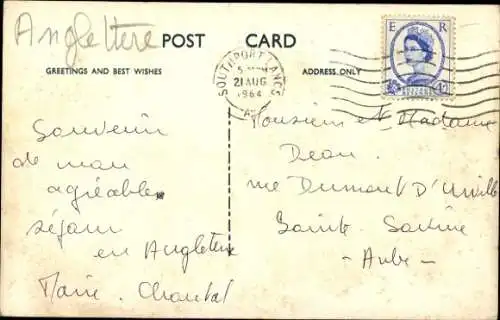 Angleterre
POST CARD
GREETINGS AND BEST WISHES
ADDRESS ONLY
E R
SOUTHPORT LANCS
21 AUG
1964
Souvenir
de mon
agréable
séjour
en Angleterre
Marie. Chantal
Monsieur et Madame
Dean.
rue Dumont D'Urville
Sainte. Savine
- Aube -